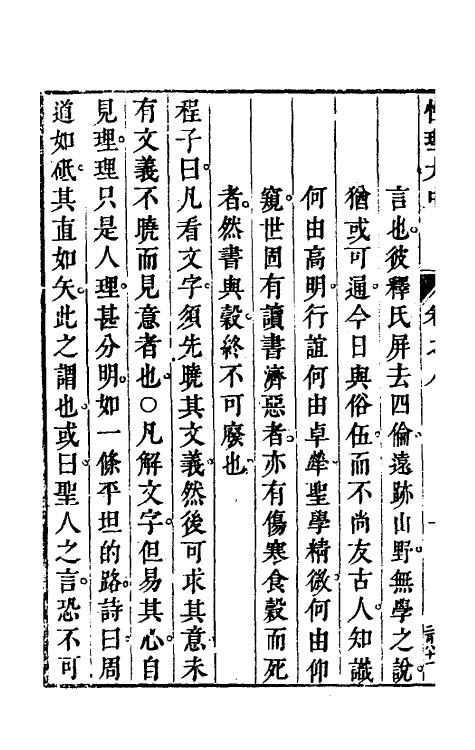 性理大中
卷之八
言也。彼釋氏屏去四倫。遠跡山野。無學之說。
猶或可通。今日與俗伍。而不尚友古人。知識
何由高明。行誼何由卓犖。聖學精微。何由仰
窺。世固有讀書濟惡者。亦有傷寒食穀而死
者。然書與穀終不可廢也
程子曰。凡看文字。須先曉其文義。然後可求其意。未
有文義不曉而見意者也。○凡解文字。但易其心。自
見理。理只是人理。甚分明。如一條平坦的路。詩曰。周
道如砥。其直如矢。此之謂也。或曰。聖人之言。恐不可